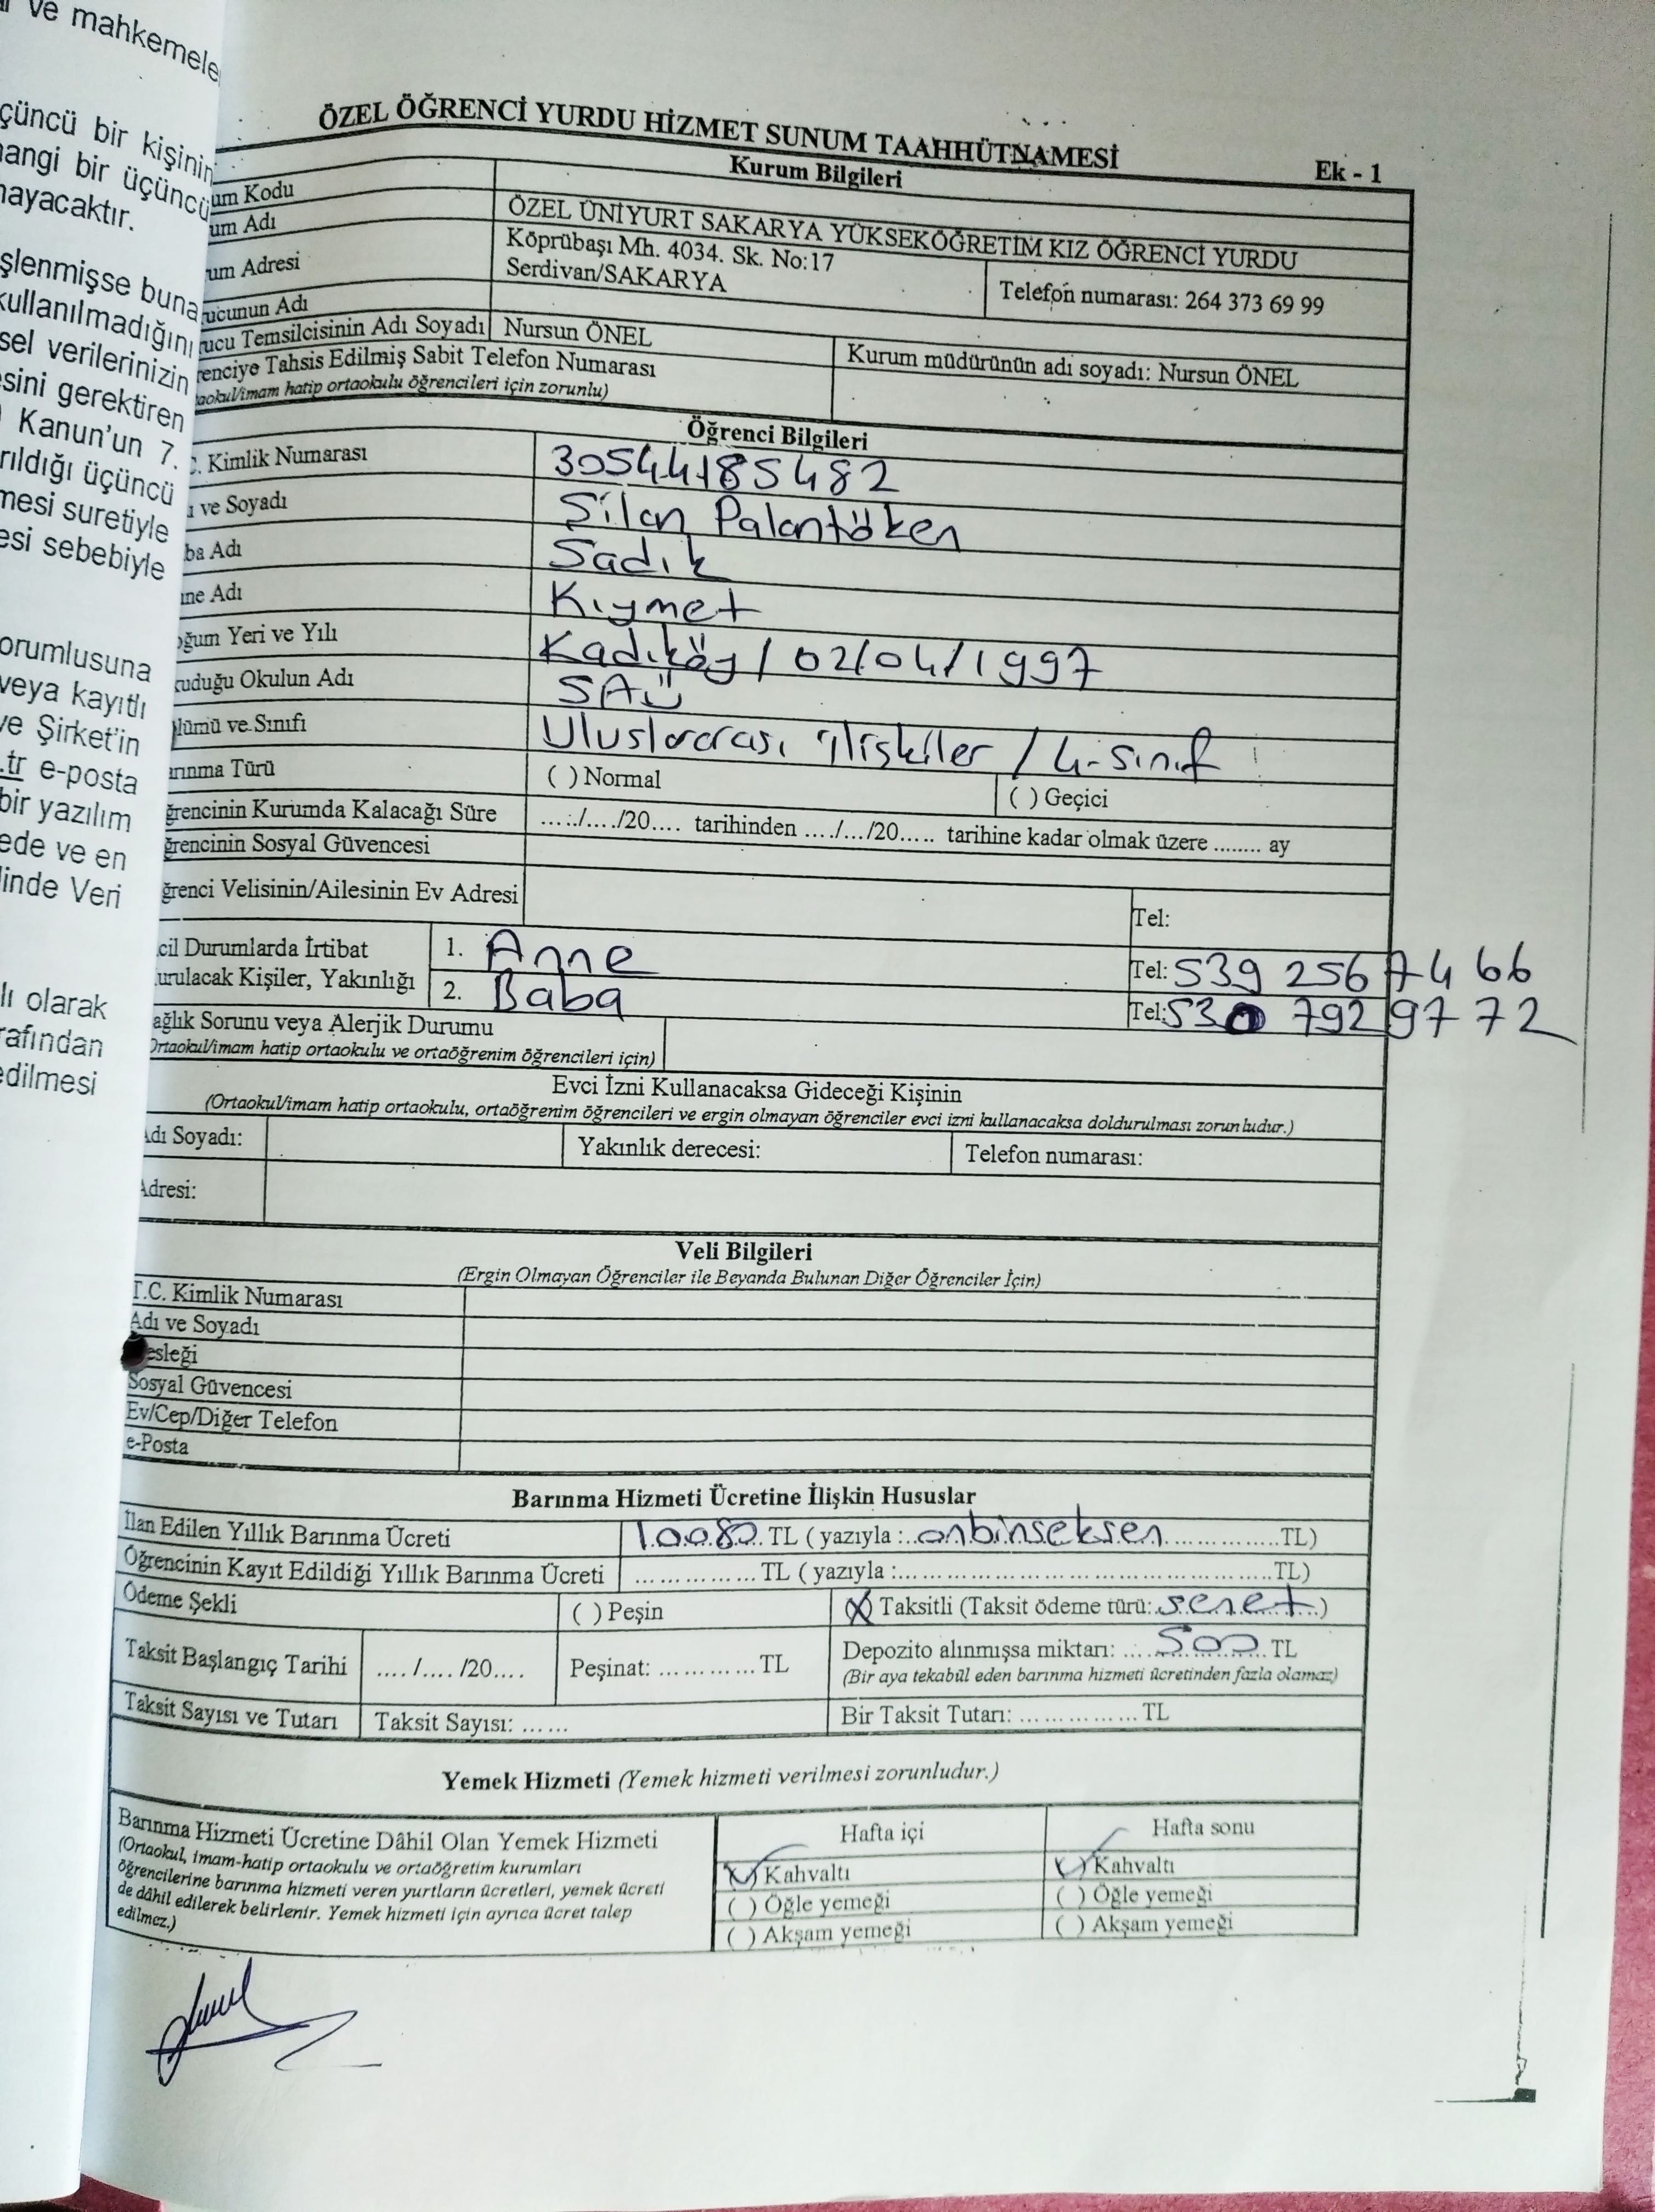 ve mahkemele
çüncü bir kişinin
hangi bir üçüncü
mayacaktır.
işlenmişse buna
kullanılmadığını
sel verilerinizin
esini gerektiren
Kanun'un 7.
rıldığı üçüncü
mesi suretiyle
esi sebebiyle
orumlusuna
veya kayıtlı
ve Şirket'in
.tr e-posta
bir yazılım
ede ve en
linde Veri
lı olarak
rafından
edilmesi
ÖZEL ÖĞRENCİ YURDU HİZMET SUNUM TAAHHÜTNAMESİ
Ek - 1
Kurum Bilgileri
um Kodu
um Adı ÖZEL ÜNİYURT SAKARYA YÜKSEKÖĞRETİM KIZ ÖĞRENCİ YURDU
um Adresi Köprübaşı Mh. 4034. Sk. No:17
Serdivan/SAKARYA Telefon numarası: 264 373 69 99
ucunun Adı
ucu Temsilcisinin Adı Soyadı Nursun ÖNEL Kurum müdürünün adı soyadı: Nursun ÖNEL
renciye Tahsis Edilmiş Sabit Telefon Numarası
aokul/imam hatip ortaokulu öğrencileri için zorunlu)
Öğrenci Bilgileri
C. Kimlik Numarası 30544185482
ı ve Soyadı Silan Palantöken
ba Adı Sadık
nne Adı Kıymet
oğum Yeri ve Yılı Kadıköy / 02/04/1997
kuduğu Okulun Adı SAÜ
lümü ve Sınıfı Uluslararası ilişkiler / 4. sınıf
arınma Türü ( ) Normal ( ) Geçici
ğrencinin Kurumda Kalacağı Süre ...../..../20.... tarihinden ..../.../20..... tarihine kadar olmak üzere ........ ay
ğrencinin Sosyal Güvencesi
ğrenci Velisinin/Ailesinin Ev Adresi Tel:
cil Durumlarda İrtibat 1. Anne Tel: 539 256 74 66
urulacak Kişiler, Yakınlığı 2. Baba Tel: 530 792 97 72
ağlık Sorunu veya Alerjik Durumu
Ortaokul/imam hatip ortaokulu ve ortaöğrenim öğrencileri için)
Evci İzni Kullanacaksa Gideceği Kişinin
(Ortaokul/imam hatip ortaokulu, ortaöğrenim öğrencileri ve ergin olmayan öğrenciler evci izni kullanacaksa doldurulması zorunludur.)
Adı Soyadı: Yakınlık derecesi: Telefon numarası:
Adresi:
Veli Bilgileri
(Ergin Olmayan Öğrenciler ile Beyanda Bulunan Diğer Öğrenciler İçin)
T.C. Kimlik Numarası
Adı ve Soyadı
esleği
Sosyal Güvencesi
Ev/Cep/Diğer Telefon
e-Posta
Barınma Hizmeti Ücretine İlişkin Hususlar
İlan Edilen Yıllık Barınma Ücreti 10080 TL ( yazıyla : onbinseksen ............... TL)
Öğrencinin Kayıt Edildiği Yıllık Barınma Ücreti ............... TL ( yazıyla :............................................. TL)
Ödeme Şekli ( ) Peşin (X) Taksitli (Taksit ödeme türü: senet )
Taksit Başlangıç Tarihi ..../..../20.... Peşinat: ............ TL Depozito alınmışsa miktarı: .... 500 TL
(Bir aya tekabül eden barınma hizmeti ücretinden fazla olamaz)
Taksit Sayısı ve Tutarı Taksit Sayısı: ...... Bir Taksit Tutarı: ............... TL
Yemek Hizmeti (Yemek hizmeti verilmesi zorunludur.)
Barınma Hizmeti Ücretine Dâhil Olan Yemek Hizmeti Hafta içi Hafta sonu
(Ortaokul, imam-hatip ortaokulu ve ortaöğretim kurumları
öğrencilerine barınma hizmeti veren yurtların ücretleri, yemek ücreti
de dâhil edilerek belirlenir. Yemek hizmeti için ayrıca ücret talep
edilmez.)
(✓) Kahvaltı (✓) Kahvaltı
( ) Öğle yemeği ( ) Öğle yemeği
( ) Akşam yemeği ( ) Akşam yemeği